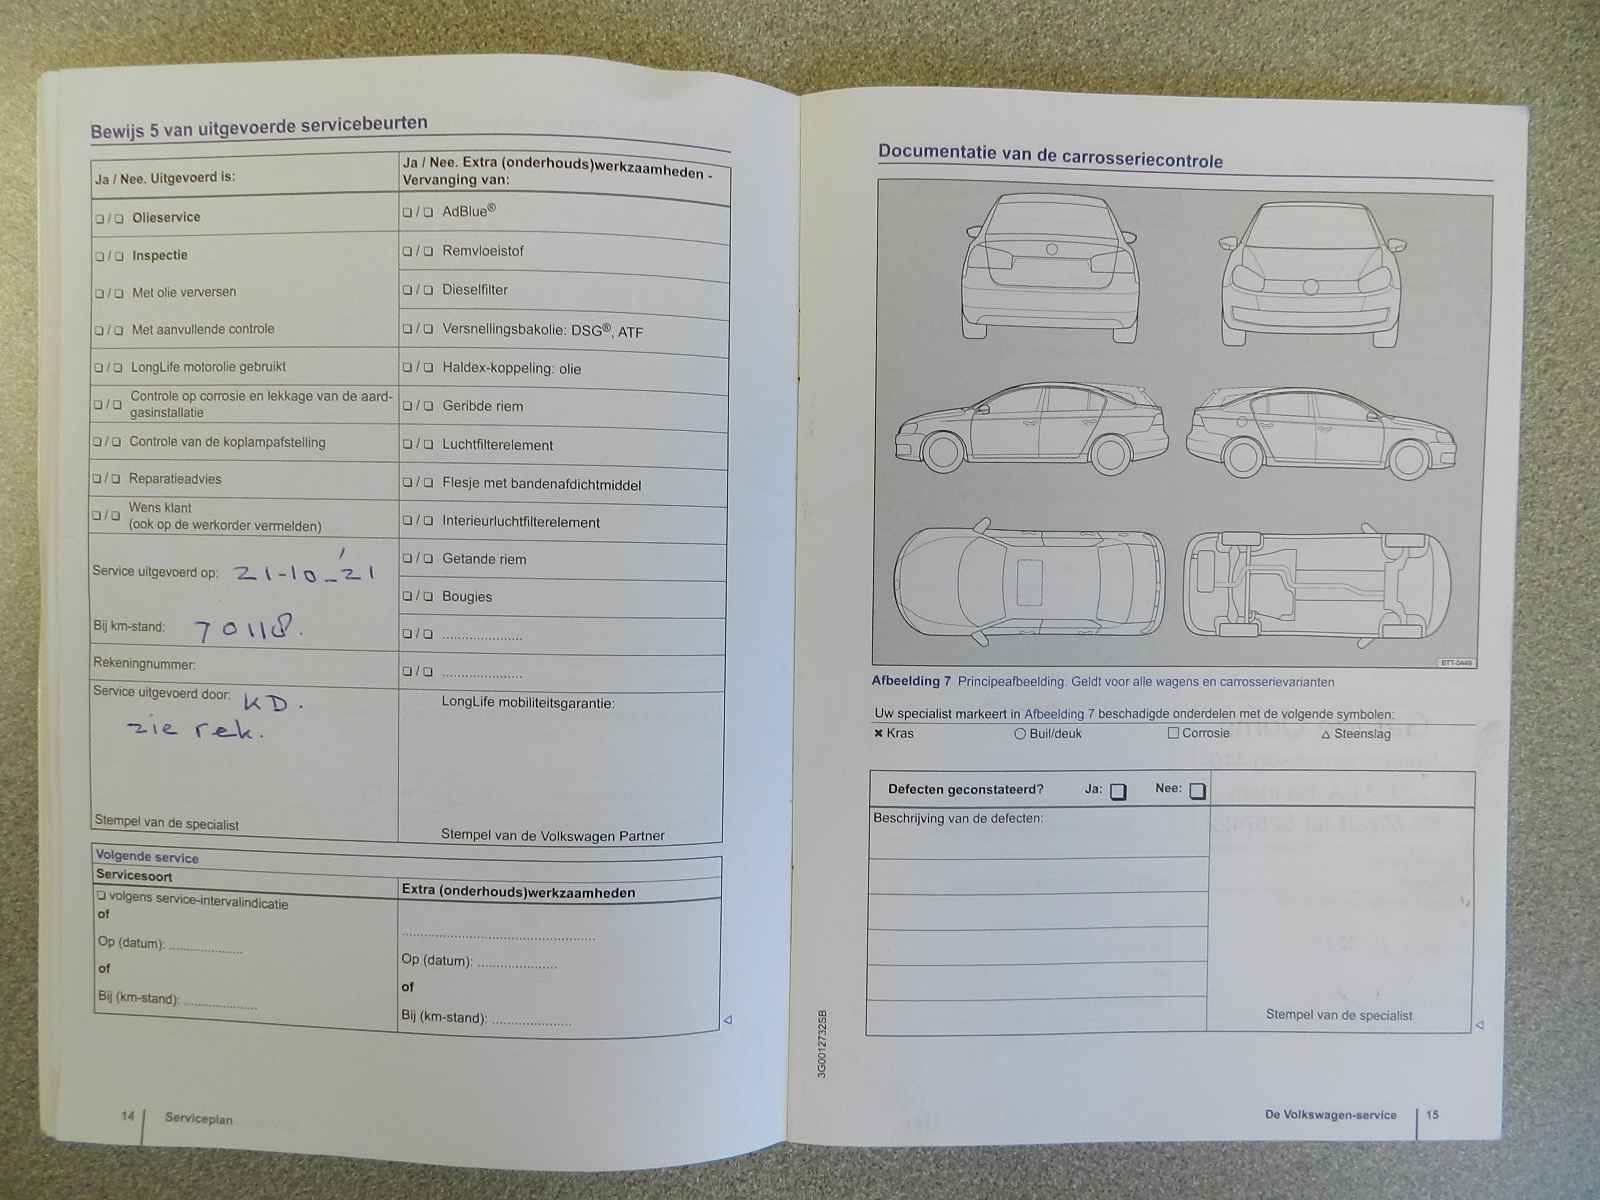 Bewijs 5 van uitgevoerde servicebeurten
Ja / Nee. Uitgevoerd is:
❏ / ❏ Olieservice
❏ / ❏ Inspectie
❏ / ❏ Met olie verversen
❏ / ❏ Met aanvullende controle
❏ / ❏ LongLife motorolie gebruikt
❏ / ❏ Controle op corrosie en lekkage van de aard-
gasinstallatie
❏ / ❏ Controle van de koplampafstelling
❏ / ❏ Reparatieadvies
❏ / ❏ Wens klant
(ook op de werkorder vermelden)
Service uitgevoerd op: 21-10-21
Bij km-stand: 70118.
Rekeningnummer:
Service uitgevoerd door: KD.
zie rek.
Stempel van de specialist
Ja / Nee. Extra (onderhouds)werkzaamheden -
Vervanging van:
❏ / ❏ AdBlue®
❏ / ❏ Remvloeistof
❏ / ❏ Dieselfilter
❏ / ❏ Versnellingsbakolie: DSG®, ATF
❏ / ❏ Haldex-koppeling: olie
❏ / ❏ Geribde riem
❏ / ❏ Luchtfilterelement
❏ / ❏ Flesje met bandenafdichtmiddel
❏ / ❏ Interieurluchtfilterelement
❏ / ❏ Getande riem
❏ / ❏ Bougies
❏ / ❏ ....................
❏ / ❏ ....................
LongLife mobiliteitsgarantie:
Stempel van de Volkswagen Partner
Volgende service
Servicesoort
❏ volgens service-intervalindicatie
of
Op (datum): ...................
of
Bij (km-stand): ...................
Extra (onderhouds)werkzaamheden
.................................................
Op (datum): ....................
of
Bij (km-stand): ....................
14 Serviceplan
Documentatie van de carrosseriecontrole
BTT-0449
Afbeelding 7 Principeafbeelding. Geldt voor alle wagens en carrosserievarianten
Uw specialist markeert in Afbeelding 7 beschadigde onderdelen met de volgende symbolen:
✖ Kras ○ Buil/deuk □ Corrosie △ Steenslag
Defecten geconstateerd? Ja: ❏ Nee: ❏
Beschrijving van de defecten:
Stempel van de specialist
3G0012732SB
De Volkswagen-service 15